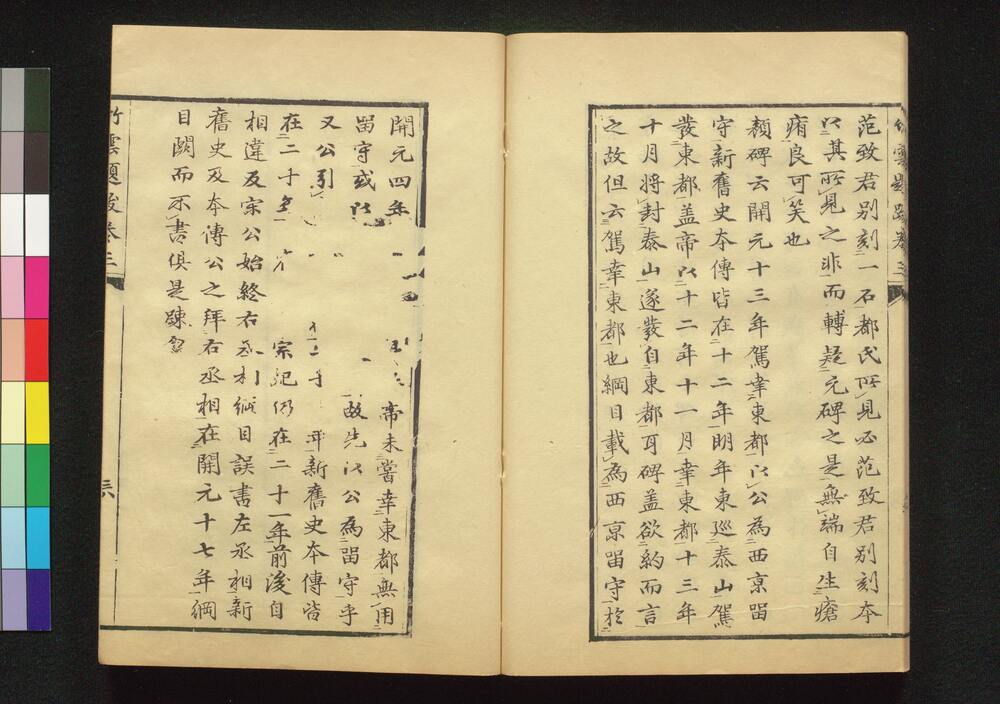 竹雲題跋卷三
范致君別刻一石都氏所見必范致君別刻本
以其所見之非而轉疑元碑之是無端自生瘡
痏良可笑也
顏碑云開元十三年駕幸東都以公為西京畱
守新舊史本傳皆在十二年明年東巡泰山駕
發東都蓋帝以十二年十一月幸東都十三年
十月將封泰山遂發自東都耳碑蓋欲約而言
之故但云駕幸東都也綱目載為西京畱守於
開元四年
帝未嘗幸東都無用
畱守或以
故先以公為畱守乎
又公引
新舊史本傳皆
在二十
宗紀仍在二十一年前後自
相違反宋公始終右丞相綱目誤書左丞相新
舊史及本傳公之拜右丞相在開元十七年綱
目闕而不書俱是踈忽
竹雲題跋卷三